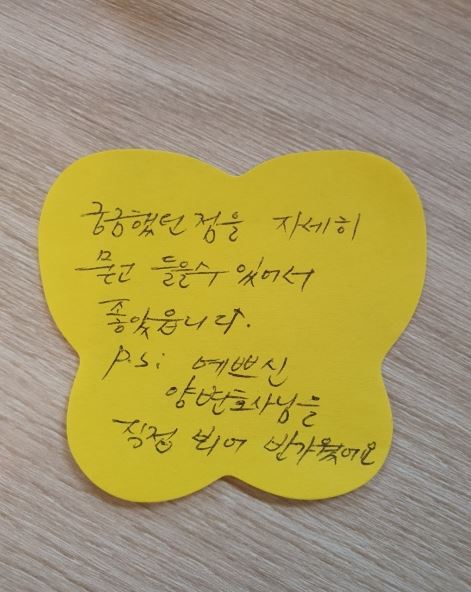 궁금했던 점을 자세히
묻고 들을수 있어서
좋았읍니다.
P.S: 예쁘신
양변호사님을
직접 뵈어 반가웠어요